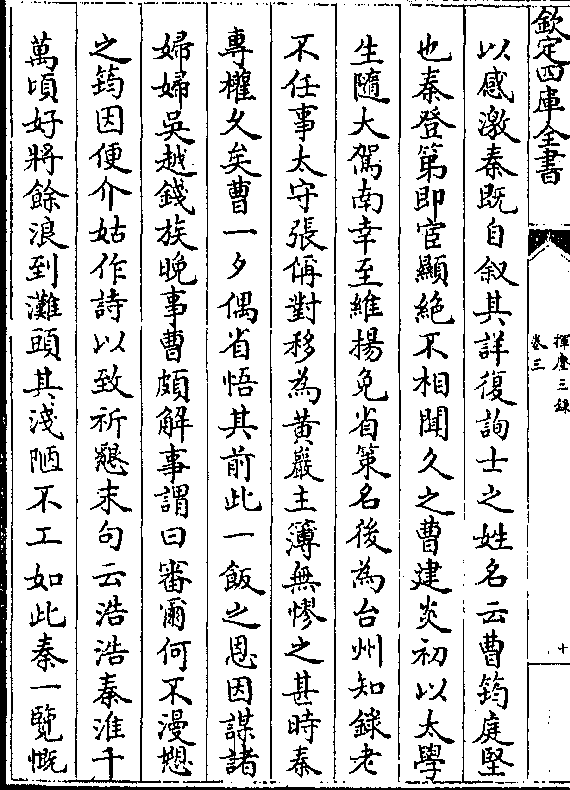 欽定四庫全書
揮麈三録
卷三
十
以感激秦既自叙其詳復詢士之姓名云曹筠庭堅
也秦登第即宦顯絶不相聞久之曹建炎初以太學
生隨大駕南幸至維揚免省策名後為台州知録老
不任事太守張偁對移為黄巖主簿無憀之甚時秦
專權久矣曹一夕偶省悟其前此一飯之恩因謀諸
婦婦吳越錢族晩事曹頗解事謂曰審爾何不漫愬
之筠因便介姑作詩以致祈懇末句云浩浩秦淮千
萬頃好將餘浪到灘頭其淺陋不工如此秦一覽慨